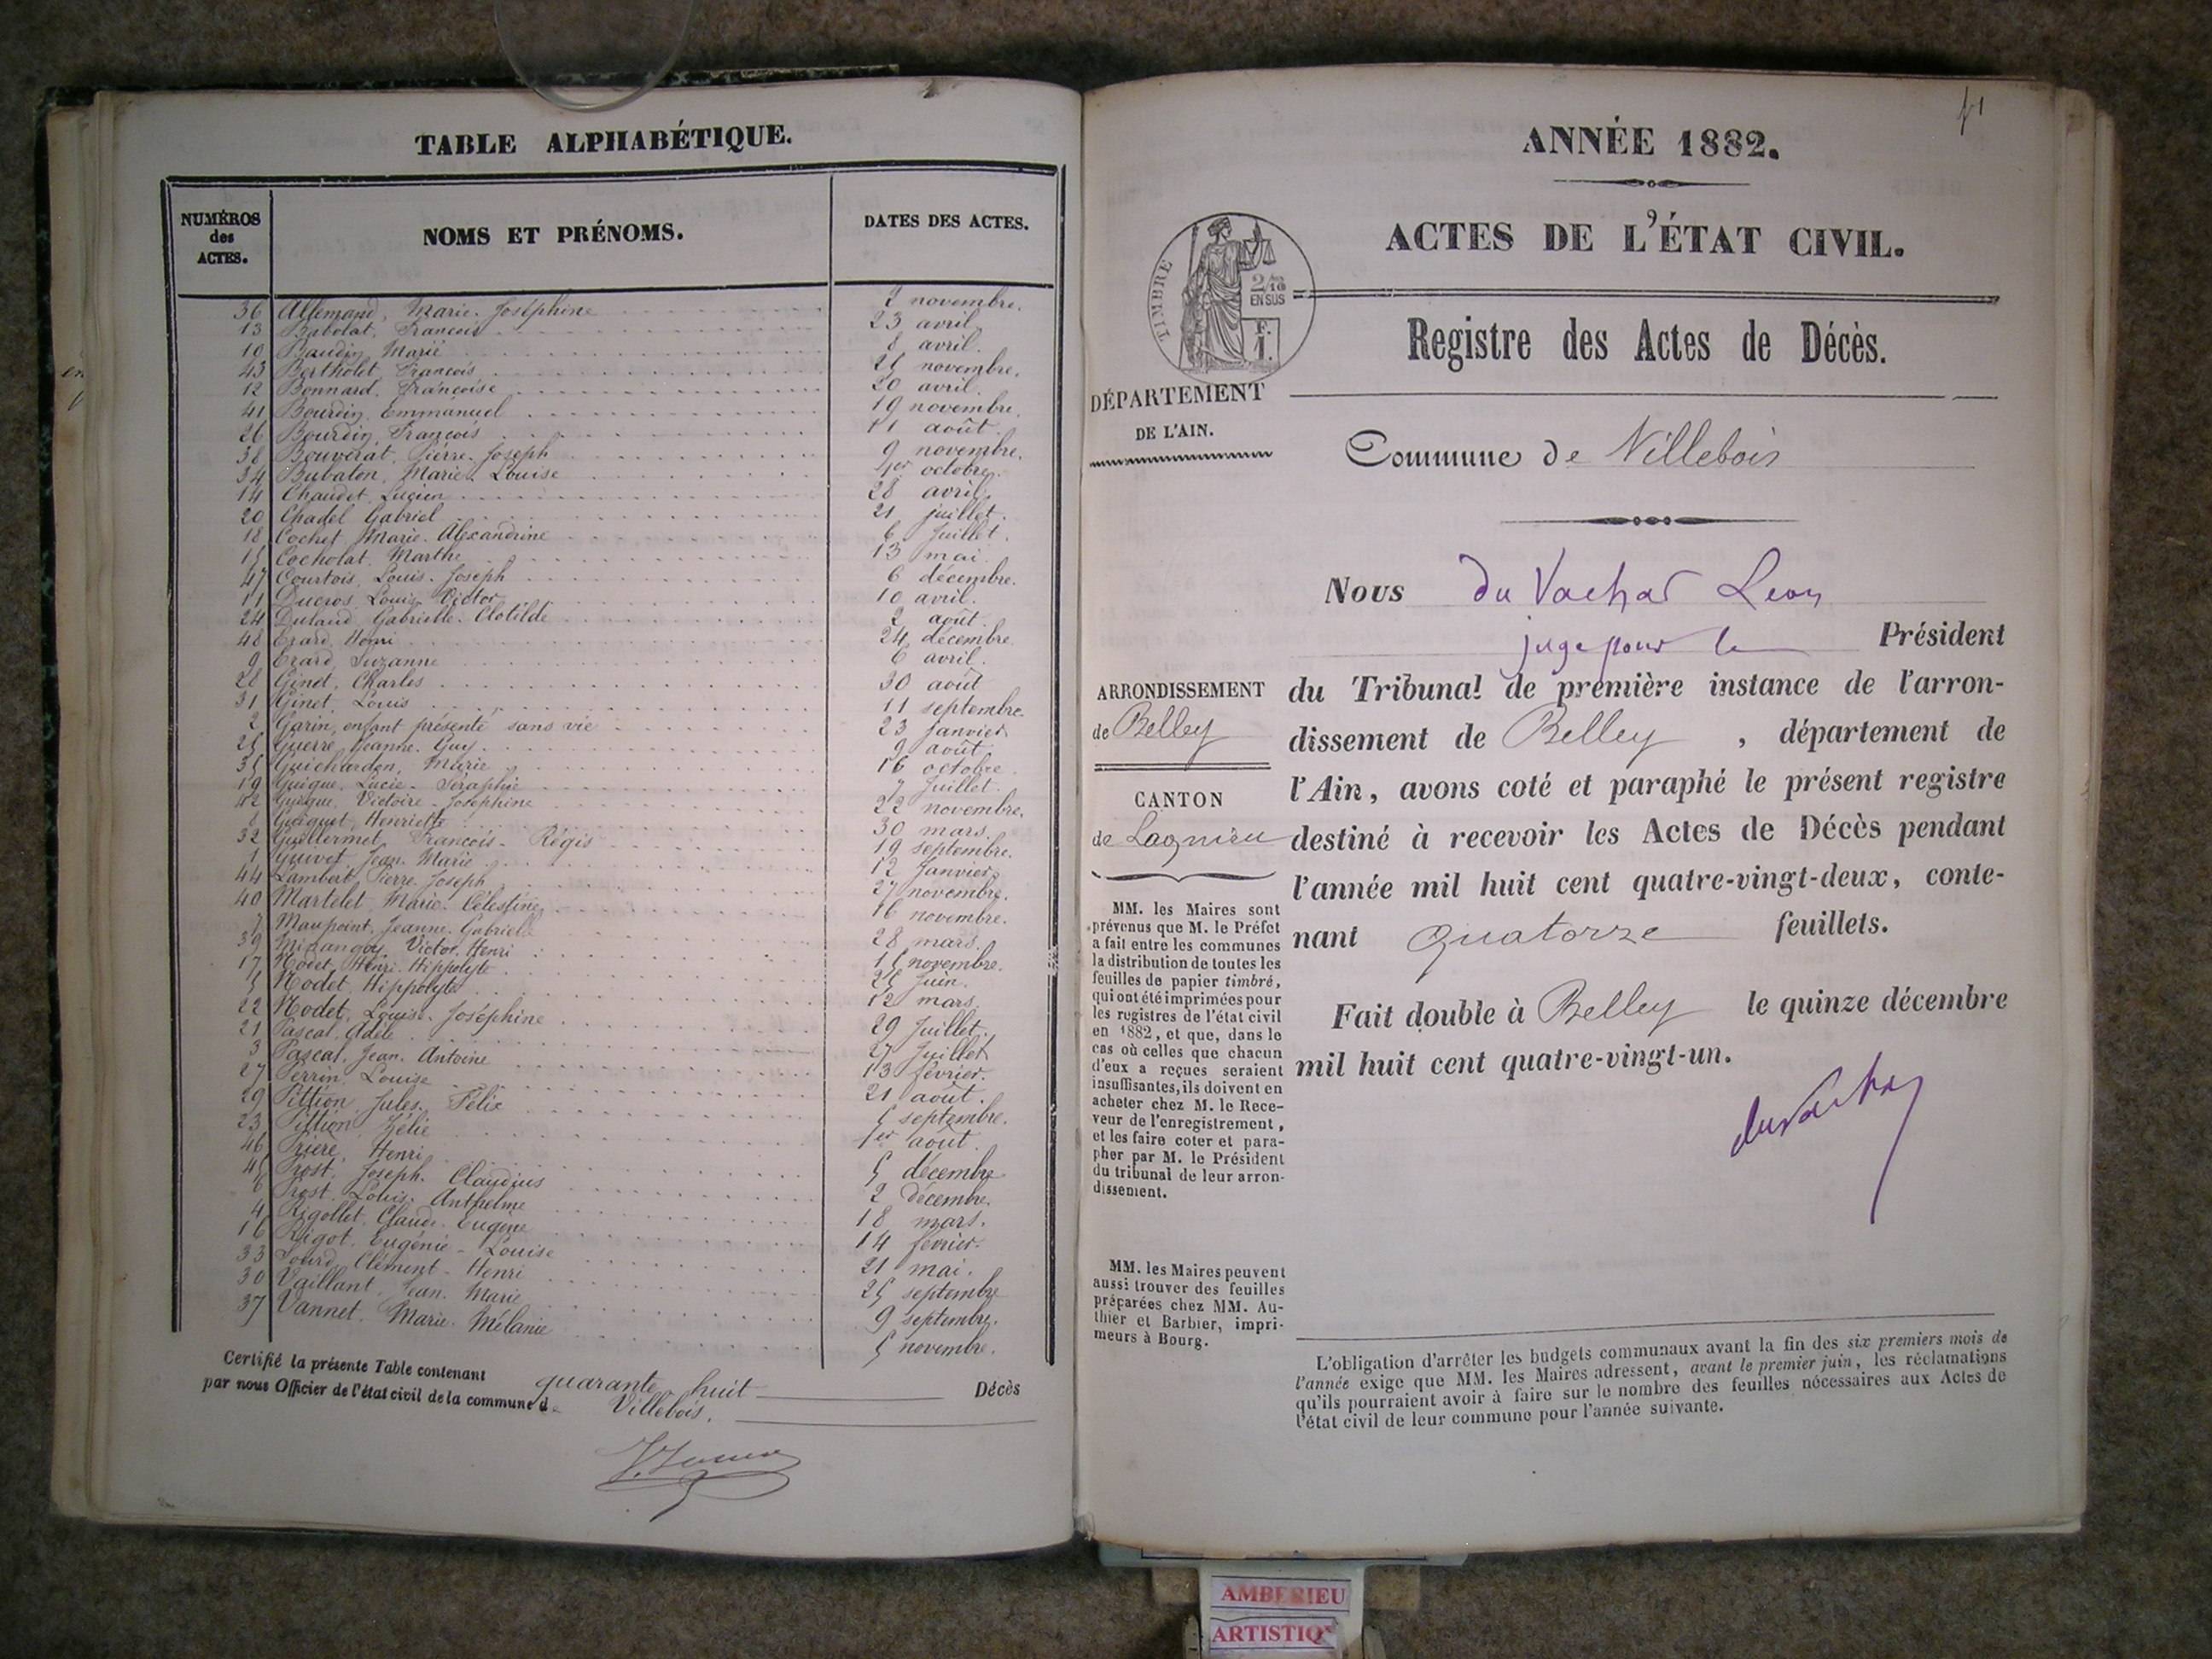 TABLE ALPHABÉTIQUE.
NUMÉROS des ACTES.
NOMS ET PRÉNOMS.
DATES DES ACTES.
36 Allemand, Marie. Joséphine 2 novembre.
13 Babolat, François 23 avril
10 Baudin, Marie 8 avril.
43 Bertholet, François 25 novembre.
12 Bonnard, Françoise 20 avril
41 Bourdin, Emmanuel 19 novembre.
26 Bourdin, François 11 août
38 Bouvérat, Pierre. Joseph 9 novembre.
34 Bubaton, Marie. Louise 1er octobre.
14 Chaudet, Lucien 28 avril.
20 Chadel Gabriel 21 juillet.
18 Cochet, Marie. Alexandrine 6 Juillet.
15 Cocholat, Marthe 13 mai.
47 Courtois, Louis. Joseph 6 décembre.
11 Ducros, Louis. Victor 10 avril.
24 Dulaud, Gabrielle. Clotilde 2 août.
48 Erard, Henri 24 décembre
9 Erard, Suzanne 6 avril.
28 Ginet, Charles 30 août
31 Ginet, Louis 11 septembre.
2 Garin, enfant présenté sans vie 23 Janvier.
25 Guerre Jeanne. Guy. 9 août.
35 Guichardon, Marie 16 octobre.
19 Guigue, Lucie. Séraphie 7 Juillet.
42 Guigue, Victoire. Joséphine 22 novembre.
8 Guiguet, Henriette 30 mars.
32 Guillermet, François. Régis 19 septembre.
1 Guivet, Jean. Marie 12 Janvier.
44 Lambert, Pierre. Joseph 27 novembre.
40 Martelet, Marie. Célestine 16 novembre.
7 Maupoint, Jeanne. Gabrielle 28 mars.
39 Minangoy, Victor. Henri 15 novembre.
17 Nodet, Henri. Hippolyte 25 Juin.
5 Nodet, Hippolyte 12 mars.
22 Nodet, Louise. Joséphine 29 Juillet.
21 Pascal, Adèle 27 Juillet
3 Pascal, Jean. Antoine 13 février.
27 Perrin, Louise 21 août.
29 Pittion, Jules. Félix 5 septembre.
23 Pittion, Zélie 1er août.
46 Prière, Henri 5 décembre
45 Prost, Joseph. Claudius 2 décembre.
6 Prost. Louis. Anthelme 18 mars.
4 Rigollet. Claude. Eugène 14 février.
16 Rigot. Eugénie - Louise 21 mai.
33 Sourd, Clément - Henri 25 septembre
30 Vaillant. Jean. Marie 9 septembre.
37 Vannet. Marie. Mélanie 5 novembre.
Certifié la présente Table contenant quarante huit Décès
par nous Officier de l'état civil de la commune de Villebois.
41
ANNÉE 1882.
ACTES DE L'ÉTAT CIVIL.
TIMBRE
2/10
EN SUS
F.
1.
Registre des Actes de Décès.
DÉPARTEMENT
DE L'AIN.
Commune de Villebois
Nous du Vachat Leon
juge pour le Président
du Tribunal de première instance de l'arron-
dissement de Belley, département de
l'Ain, avons coté et paraphé le présent registre
destiné à recevoir les Actes de Décès pendant
l'année mil huit cent quatre-vingt-deux, conte-
nant quatorze feuillets.
Fait double à Belley le quinze décembre
mil huit cent quatre-vingt-un.
duVachat
ARRONDISSEMENT
de Belley
CANTON
de Lagnieu
MM. les Maires sont
prévenus que M. le Préfet
a fait entre les communes
la distribution de toutes les
feuilles de papier timbré,
qui ont été imprimées pour
les registres de l'état civil
en 1882, et que, dans le
cas où celles que chacun
d'eux a reçues seraient
insuffisantes, ils doivent en
acheter chez M. le Rece-
veur de l'enregistrement,
et les faire coter et para-
pher par M. le Président
du tribunal de leur arron-
dissement.
MM. les Maires peuvent
aussi trouver des feuilles
préparées chez MM. Au-
thier et Barbier, impri-
meurs à Bourg.
L'obligation d'arrêter les budgets communaux avant la fin des six premiers mois de
l'année exige que MM. les Maires adressent, avant le premier juin, les réclamations
qu'ils pourraient avoir à faire sur le nombre des feuilles nécessaires aux Actes de
l'état civil de leur commune pour l'année suivante.
AMBERIEU
ARTISTIQ